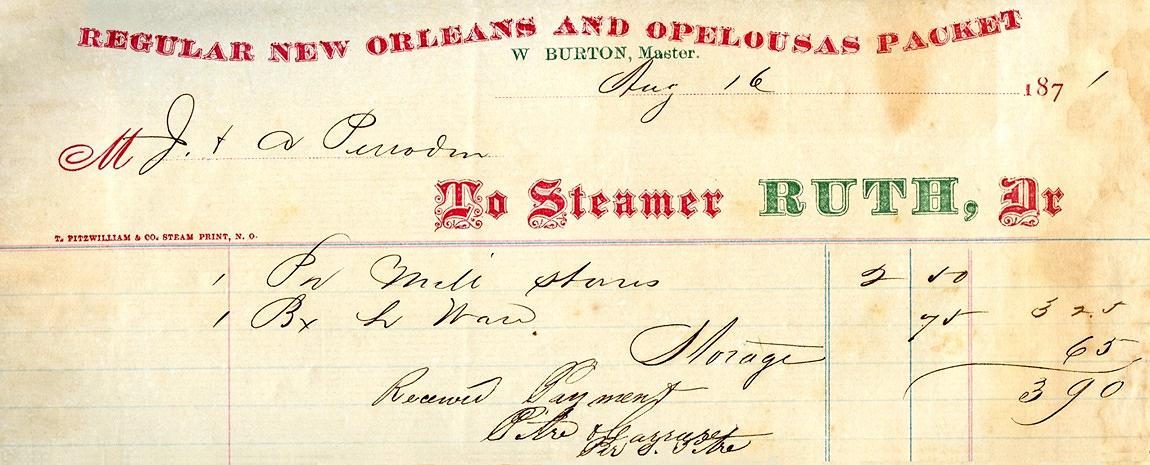 REGULAR NEW ORLEANS AND OPELOUSAS PACKET
W BURTON, Master.
Aug 16 1871
M J. & A Perrodin
To Steamer RUTH, Dr
T. FITZWILLIAM & CO. STEAM PRINT, N. O.
1 Pr Mill Stones 2 50
1 Bx Ware 75 3 25
Storage 65
Received Payment 3 90
Pitre &
Per S. Pitre